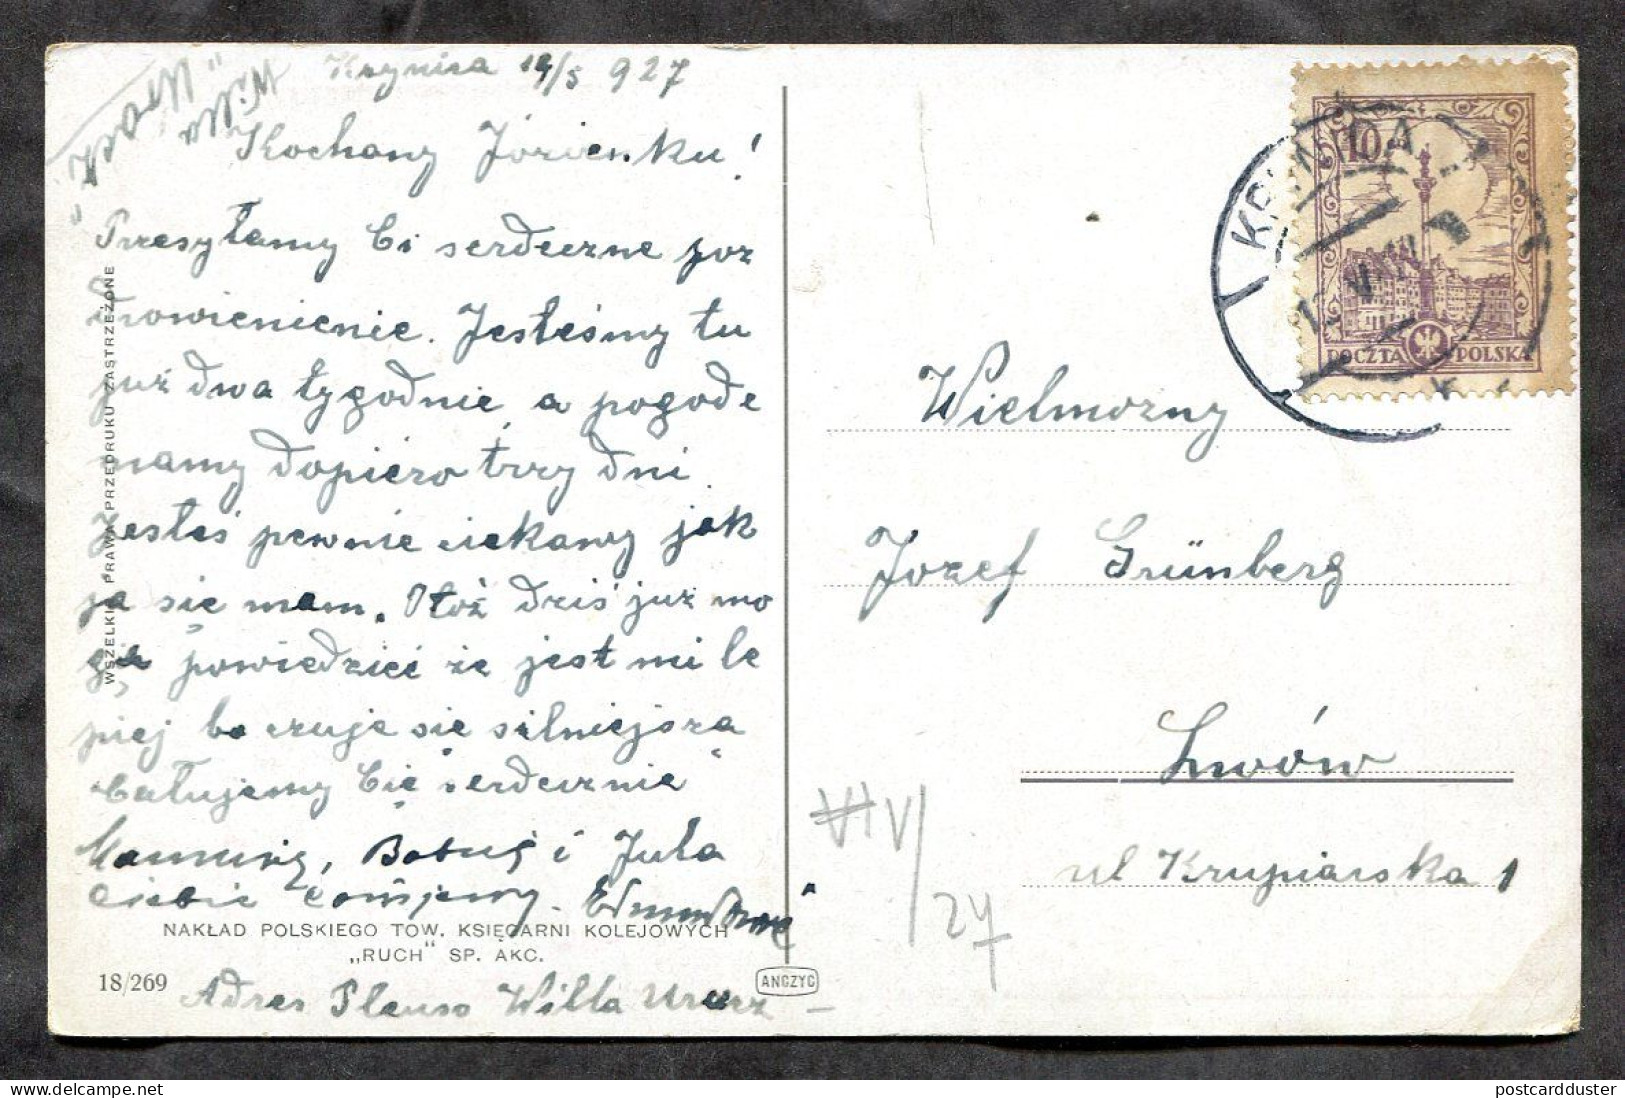 Krynica 19/5 927
Willa
"Urocz"
Kochany Józienku!
Przesyłamy Ci serdeczne poz
drowienienie. Jesteśmy tu
już dwa tygodnie, a pogodę
mamy dopiero trzy dni.
Jesteś pewnie ciekawy jak
ja się mam. Otóż dziś już mo
gę powiedzieć że jest mi le
piej bo czuje się silniejsza
Całujemy Cię serdecznie
i Jula
Ciebie
NAKŁAD POLSKIEGO TOW. KSIĘGARNI KOLEJOWYCH
„RUCH" SP. AKC.
18/269
Adres Willa Urocz
ANCZYC
WSZELKIE PRAWA PRZEDRUKU ZASTRZEŻONE
10
KRYNICA
POCZTA POLSKA
Wielmożny
Jozef Grünberg
Lwów
ul Krupiarska 1
VI V/27
postcardduster